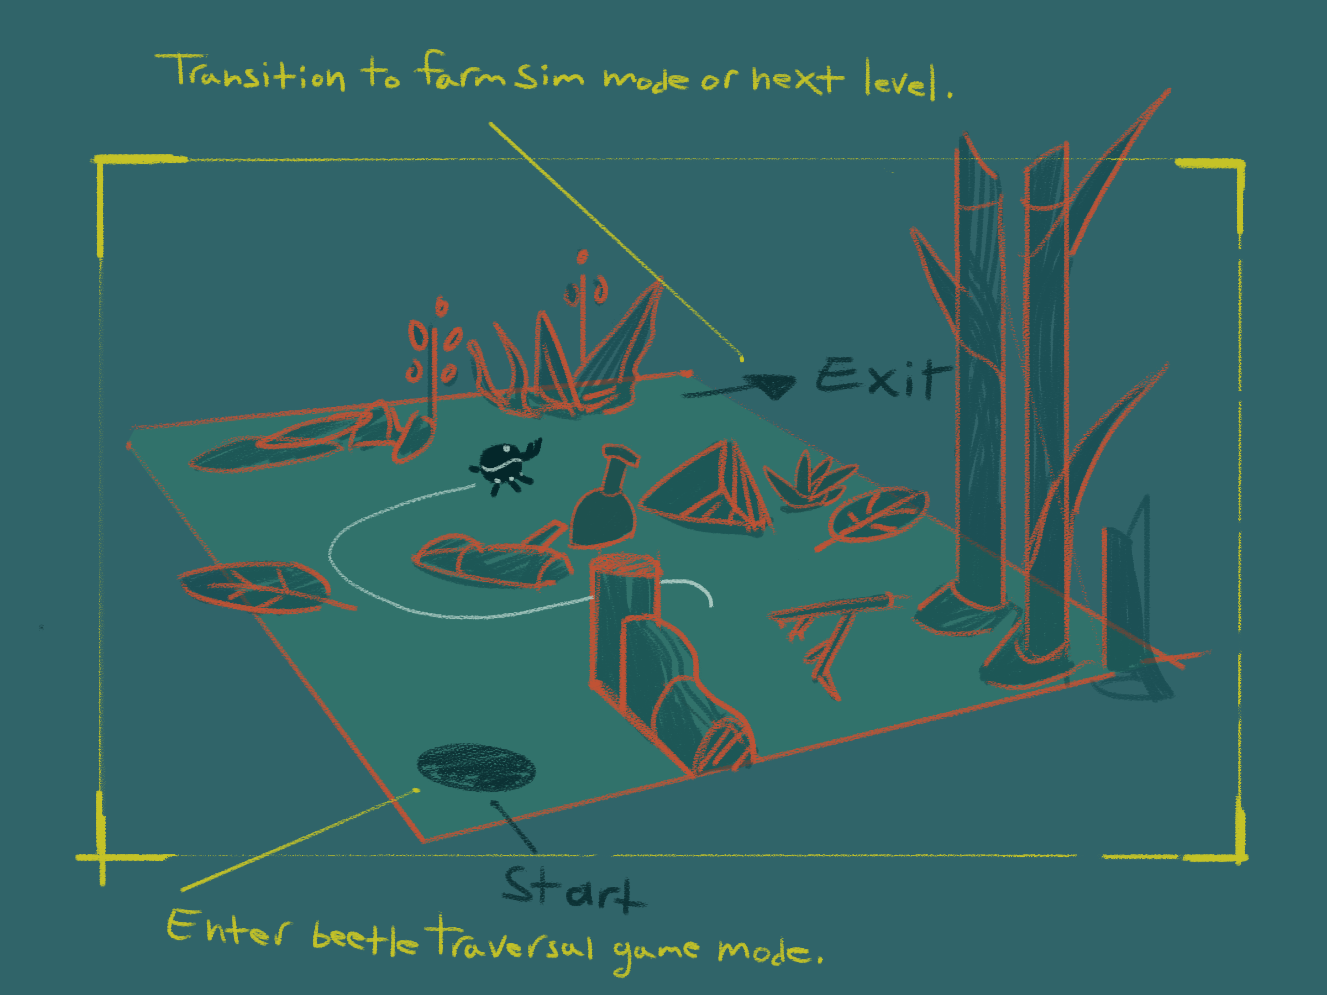 Transition to farm sim mode or next level.
Exit
Start
Enter beetle traversal game mode.